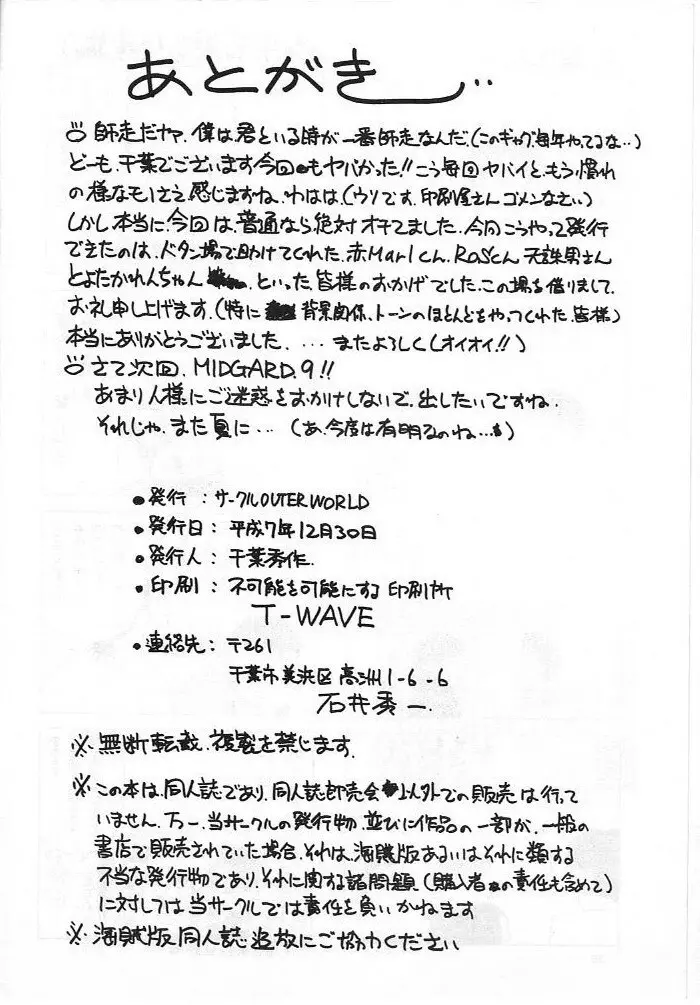 あとがき..
師走だヤァ.僕は君といる時が一番師走なんだ.(このギャグ毎年やってるな..)
どーも.千葉でございます今回もヤバかった!!こう毎回ヤバイと、もう慣れ
の様なモノさえ感じますね.わはは.(ウソです.印刷屋さんゴメンなさい)
しかし本当に今回は.普通なら絶対オチてました.今回こうやって発行
できたのは.ドタン場で助けてくれた.赤Marlくん.RaSくん天誅男さん
とよたかれんちゃん.といった皆様のおかげでした.この場を借りまして.
お礼申し上げます.(特に背景関係、トーンのほとんどをやってくれた.皆様)
本当にありがとうございました. ...またよろしく(オイオイ!!)
さて次回.MIDGARD.9!!
あまり人様にご迷惑をおかけしないで.出したいですね.
それじゃ.また夏に... (あ.今度は有明なのね...)
●発行 : サークルOUTER WORLD
●発行日: 平成7年12月30日
●発行人: 千葉秀作.
●印刷 : 不可能を可能にする 印刷所
T-WAVE
●連絡先: 〒261
千葉市美浜区高洲1-6-6
石井秀一.
※無断転載.複製を禁じます.
※この本は.同人誌であり.同人誌即売会以外での販売は行って
いません.万一.当サークルの発行物.並びに作品の一部が.一般の
書店で販売されていた場合.それは.海賊版あるいはそれに類する
不当な発行物であり.それに関する諸問題(購入者の責任も含めて)
に対しては当サークルでは責任を負いかねます
※海賊版同人誌追放にご協力ください